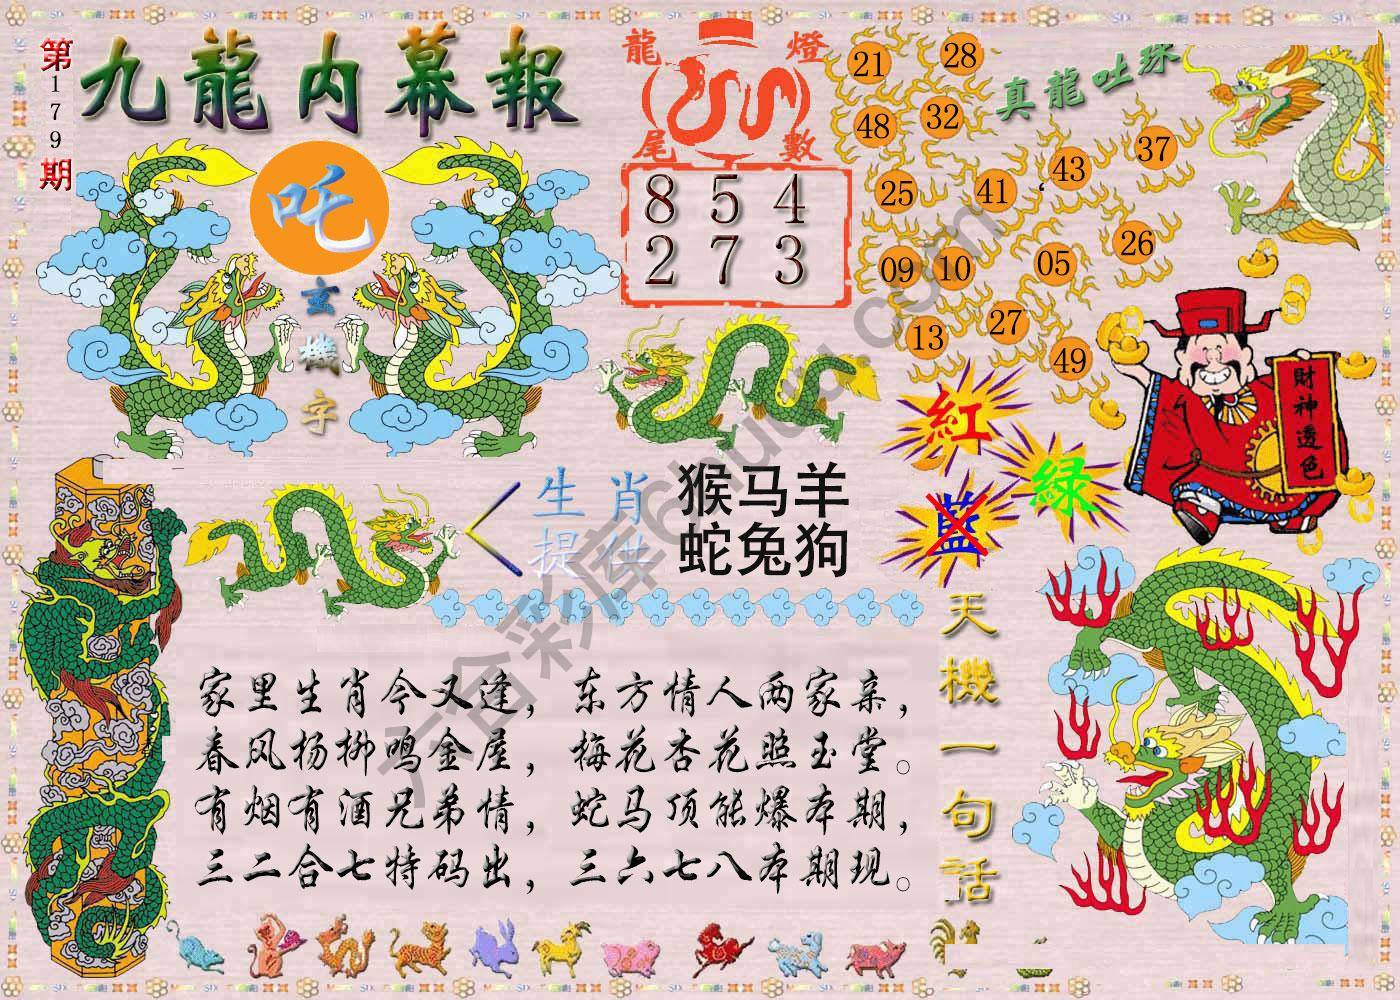 第179期
九龍内幕報
吒
玄機字
龍燈尾數
8 5 4
2 7 3
真龍吐珠
21 28
48 32
25 41 43 37
09 10 05 26
13 27 49
財神透色
紅
绿
藍
生肖提供
猴马羊
蛇兔狗
天機一句话
家里生肖今又逢，东方情人两家亲，
春风杨柳鸣金屋，梅花杏花照玉堂。
有烟有酒兄弟情，蛇马顶能爆本期，
三二合七特码出，三六七八本期现。
六合彩库6huuu.com